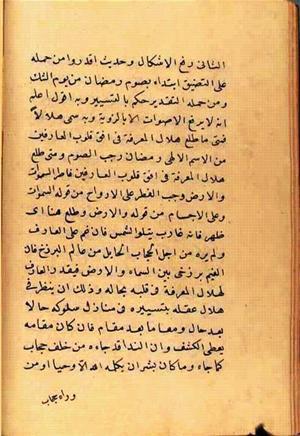 الثانى رفع الاشكال وحديث اقدروا من حمله
على التضيق ابتداء بصوم رمضان من يوم الشك
ومن حمله التقدير حكم بالتسيير وبه اقول اعلم
انه لا يرفع الاصوات الا بالرؤية وبه سمى هلالا
فمتى ما طلع هلال المعرفة فى افق قلوب العارفين
من الاسم الالهى رمضان وجب الصوم ومتى طلع
هلال المعرفة فى افق قلوب العارفين فاطر السموات
والارض وجب الفطر على الارواح من قوله السموات
وعلى الاجسام من قوله والارض وطلع هنا اى
ظهر فانه غارب يتلوا الشمس فان غم على العارف
ولم يره من اجل الحجاب الحايل من عالم البرزخ فان
الغيم برزخى بين السماء والارض فيقدر العارف
لهلال المعرفة فى قلبه بحاله وذلك ان ينظر فى
هلال عقله بتسييره فى منازل سلوكه حالا
بعد حال ومقاما بعد مقام فان كان مقامه
يعطى الكشف وان النداقد جاءه من خلف حجاب
كما جاء وما كان لبشر ان يكلمه الله الا وحيا او من
وراء حجاب